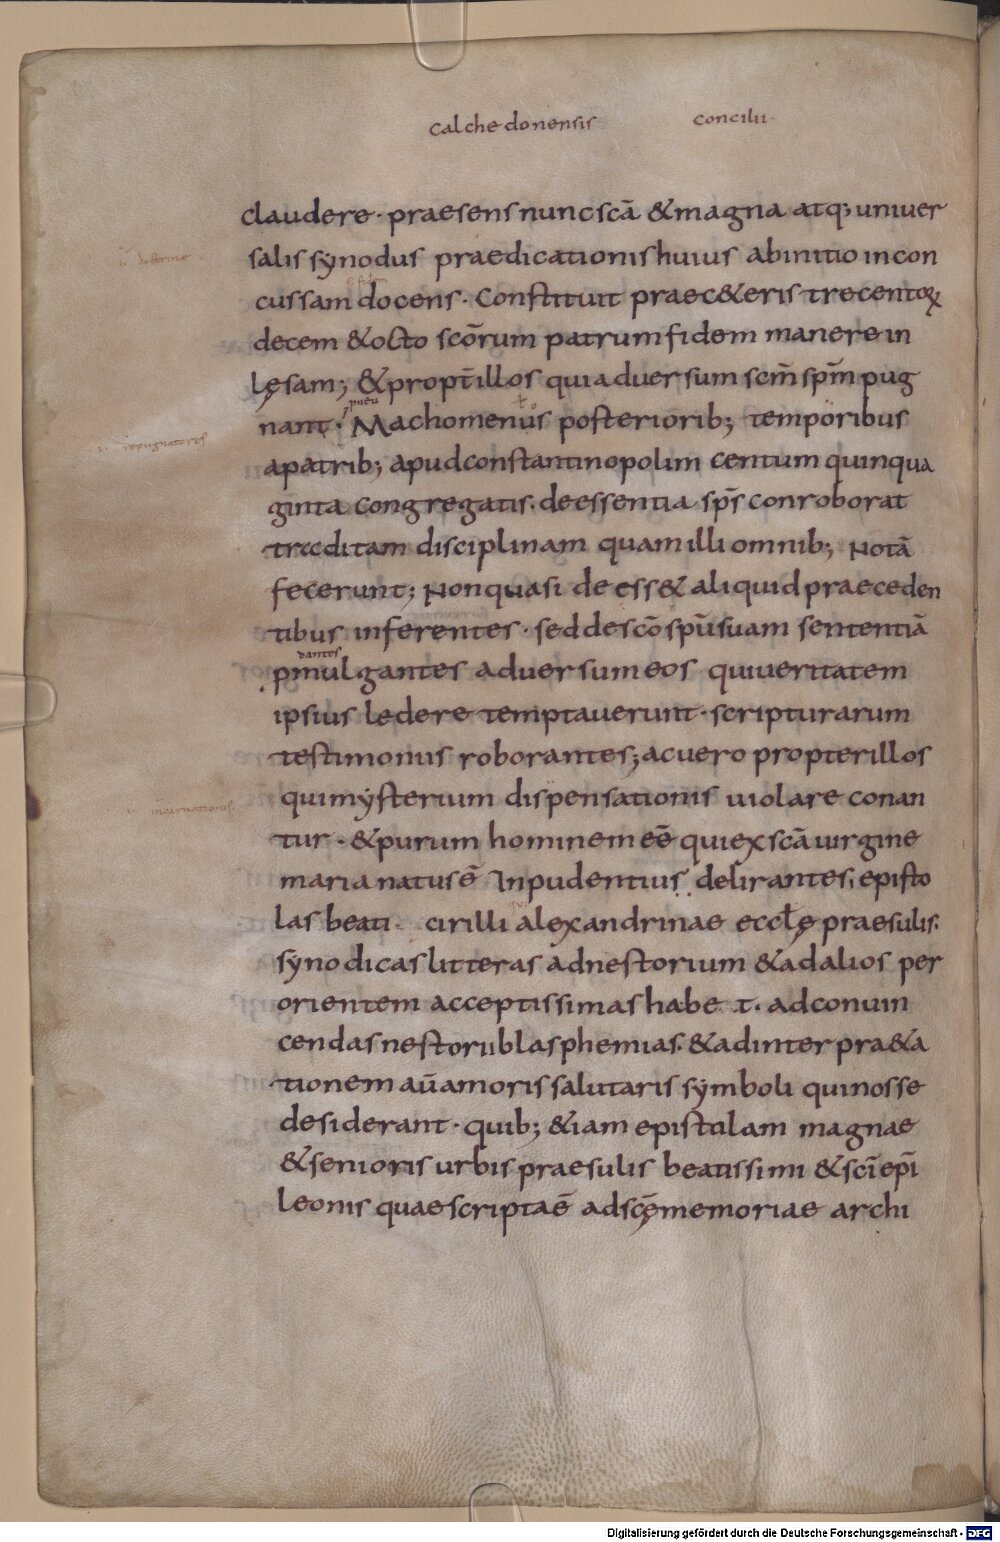 calchedonensis concilii·
claudere· praesens nunc scā & magna atq; uniuer
salis synodus praedicationis huius ab initio incon
cussam docens· Constituit praec&eris trecentoꝝ
decem & octo scōrum patrum fidem manere in
lęsam; & propt̄ illos qui aduersum scm̄ spm̄ pug
pneu
nant· Machomenus posteriorib; temporibus
a patrib; apud constantinopolim centum quinqua
ginta congregatis· de essentia sp̄s conroborat
traditam disciplinam quam illi omnib; notā
fecerunt; Non quasi deess& aliquid praeceden
tibus inferentes· sed de scō spū suam sententiā
dantes
pmulgantes aduersum eos qui ueritatem
ipsius ledere temptauerunt· scripturarum
testimoniis roborantes; ac uero propter illos
qui mysterium dispensationis uiolare conan
tur· & purum hominem eē qui ex scā uirgine
maria natus ē Inpudentius delirantes, episto
las beati cirilli alexandrinae eccłę praesulis·
synodicas litteras ad nestorium & ad alios per
orientem acceptissimas habe t· ad conuin
cendas nestorii blasphemias· & ad interpra&a
tionem aū amoris salutaris symboli qui nosse
desiderant· quib; &iam epistulam magnae
& senioris urbis praesulis beatissimi & scī epī
leonis quae scripta ē ad scę̄ memoriae archi
Digitalisierung gefördert durch die Deutsche Forschungsgemeinschaft - DFG